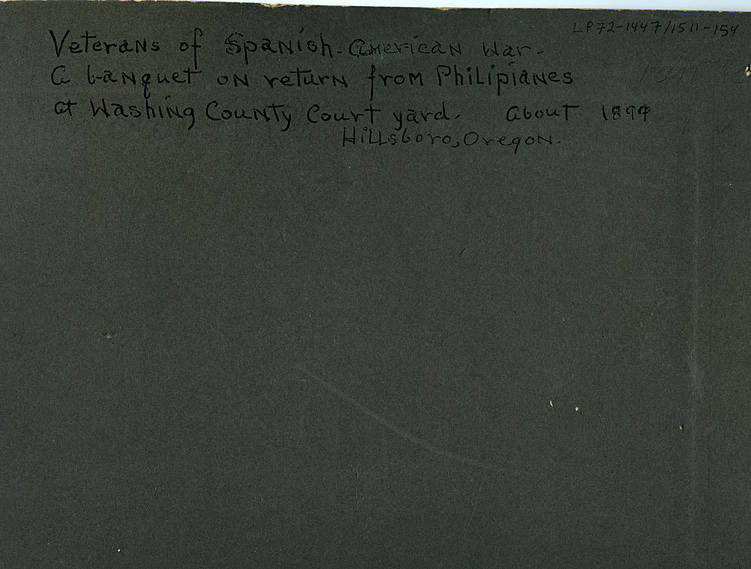 LP72-1447/1511-154
Veterans of Spanish-American War.
A banquet on return from Philipianes
at Washing County Court yard. About 1899
Hillsboro, Oregon.